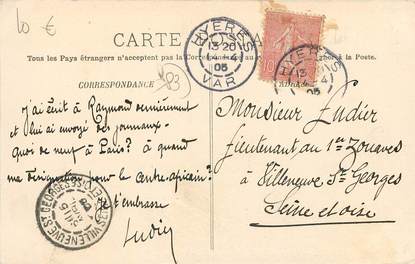 10 €
CARTE
Tous les Pays étrangers n'acceptent pas la Correspondance
à la Poste.
CORRESPONDANCE
83
HYÈRES
13 20
14 -4
05
VAR
HYÈRES
13
05
10
J'ai écrit à Raymond dernièrement
et lui ai envoyé des journaux.
Quoi de neuf à Paris ? à quand
ma désignation pour le centre-africain ?
Je t'embrasse
Ludier
Monsieur Ludier
Lieutenant au 1er Zouaves
à Villeneuve St Georges
Seine et oise
VILLENEUVE ST GEORGES
05